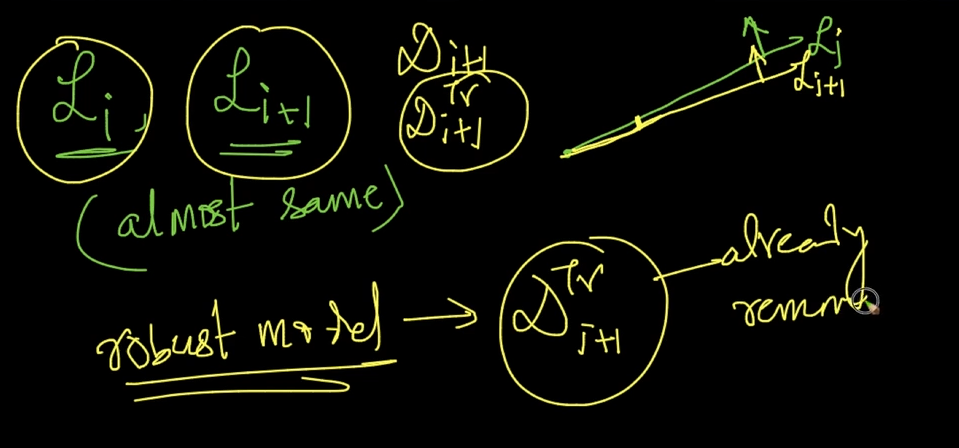 ℒi, ℒi+1 𝒟i+1
𝒟i+1^Tr
ℒj
ℒj+1
(almost same)
robust model → 𝒟j+1^Tr — already
remov